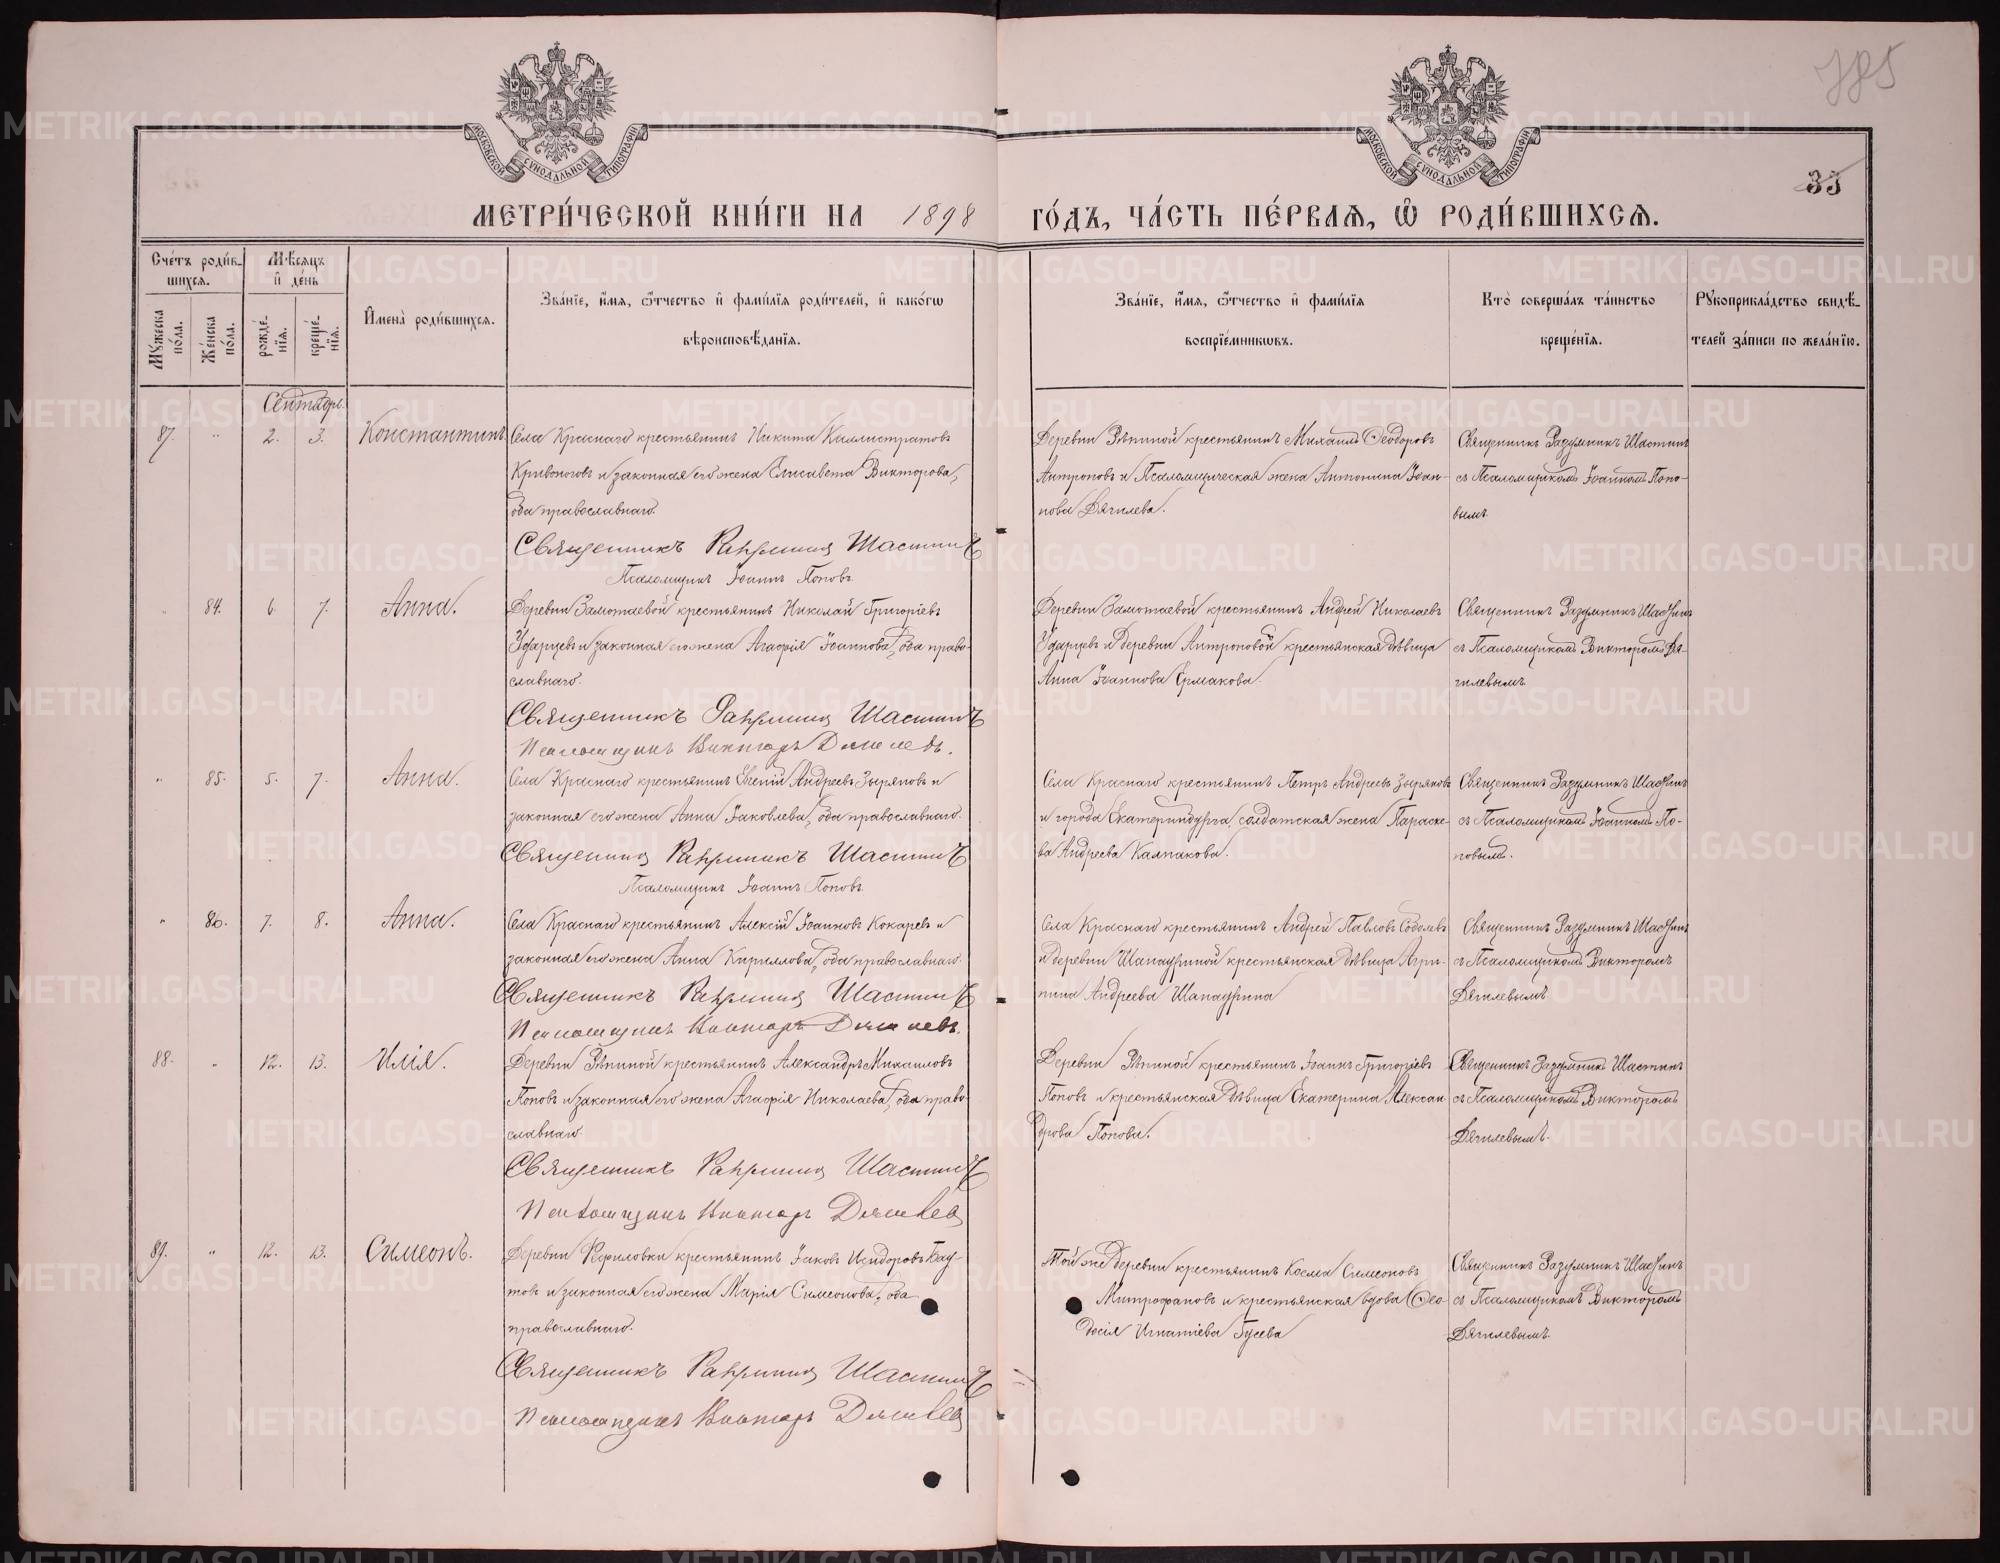 785
33
МОСКОВСКОЙ СѴНОДАЛЬНОЙ ТИПОГРАФІИ
МОСКОВСКОЙ СѴНОДАЛЬНОЙ ТИПОГРАФІИ
МЕТРИ́ЧЕСКОЙ КНИ́ГИ НА 1898 ГО́ДЪ, ЧА́СТЬ ПЕ́РВАѦ, Ѽ РОДИ́ВШИХСѦ.
Сче́тъ роди́в-
шихсѧ.
Мꙋ́жеска по́ла.
Же́нска по́ла.
Мѣ́сѧцъ
и҆ де́нь
рожде́-
нїѧ.
креще́-
нїѧ.
И҆мена̀ роди́вшихсѧ.
Зва́нїе, и҆́мѧ, ѻ҆́тчество и҆ фамилїѧ роди́телей, и҆ како́гѡ
вѣроисповѣ́данїѧ.
Зва́нїе, и҆́мѧ, ѻ҆́тчество и҆ фамилїѧ
воспрїе́мникѡвъ.
Кто̀ соверша́лъ та́инство
креще́нїѧ.
Рꙋкоприкла́дство свидѣ́-
телей за́писи по жела́нїю.
Сентябрь
87. " 2. 3. Константинъ.
Села Краснаго крестьянинъ Никита Каллистратовъ
Кривоноговъ и законная его жена Елисавета Викторова,
оба православнаго.
Священникъ Разумникъ Шастинъ
Псаломщикъ Іоаннъ Поповъ
Деревни Рѣпиной крестьянинъ Михаилъ Ѳеодоровъ
Антроповъ и Псаломщическая жена Антонина Іоан-
нова Дягилева.
Священникъ Разумникъ Шастинъ
съ Псаломщикомъ Іоанномъ Попо-
вымъ.
" 84. 6. 7. Анна.
Деревни Замотаевой крестьянинъ Николай Григоріевъ
Ударцевъ и законная его жена Агафія Іоаннова, оба право-
славнаго.
Священникъ Разумникъ Шастинъ
Псаломщикъ Викторъ Дягилевъ.
Деревни Замотаевой крестьянинъ Андрей Николаевъ
Ударцевъ и деревни Антроповой крестьянская дѣвица
Анна Іоаннова Ермакова.
Священникъ Разумникъ Шастинъ
съ Псаломщикомъ Викторомъ Дя-
гилевымъ.
" 85. 5. 7. Анна.
Села Краснаго крестьянинъ Евгеній Андреевъ Зыряновъ и
законная его жена Анна Іаковлева, оба православнаго.
Священникъ Разумникъ Шастинъ
Псаломщикъ Іоаннъ Поповъ.
Села Краснаго крестьянинъ Петръ Андреевъ Зыряновъ
и города Екатеринбурга солдатская жена Параске-
ва Андреева Калпакова.
Священникъ Разумникъ Шастинъ
съ Псаломщикомъ Іоанномъ По-
повымъ.
" 86. 7. 8. Анна.
Села Краснаго крестьянинъ Алексій Іоанновъ Кокаревъ и
законная его жена Анна Кириллова, оба православнаго.
Священникъ Разумникъ Шастинъ
Псаломщикъ Викторъ Дягилевъ.
Села Краснаго крестьянинъ Андрей Павловъ Соболевъ
и деревни Шапаушиной крестьянская дѣвица Агрип-
пина Андреева Шапаушина
Священникъ Разумникъ Шастинъ
съ Псаломщикомъ Викторомъ
Дягилевымъ
88. " 12. 13. Илія.
Деревни Рѣпиной крестьянинъ Александръ Михаиловъ
Поповъ и законная его жена Агафія Николаева, оба право-
славнаго.
Священникъ Разумникъ Шастинъ
Псаломщикъ Викторъ Дягилевъ
Деревни Рѣпиной крестьянинъ Іоаннъ Григоріевъ
Поповъ и крестьянская дѣвица Екатерина Алексан-
дрова Попова.
Священникъ Разумникъ Шастинъ
съ Псаломщикомъ Викторомъ
Дягилевымъ.
89. " 12. 13. Симеонъ.
Деревни крестьянинъ Іаковъ Исидоровъ
и законная его жена Марія Симеонова, оба
православнаго.
Священникъ Разумникъ Шастинъ
Псаломщикъ Викторъ Дягилевъ
Той же деревни крестьянинъ Косма Симеоновъ
Митрофановъ и крестьянская вдова Ѳео-
досія Игнатіева Гусева
Священникъ Разумникъ Шастинъ
съ Псаломщикомъ Викторомъ
Дягилевымъ.
METRIKI.GASO-URAL.RU